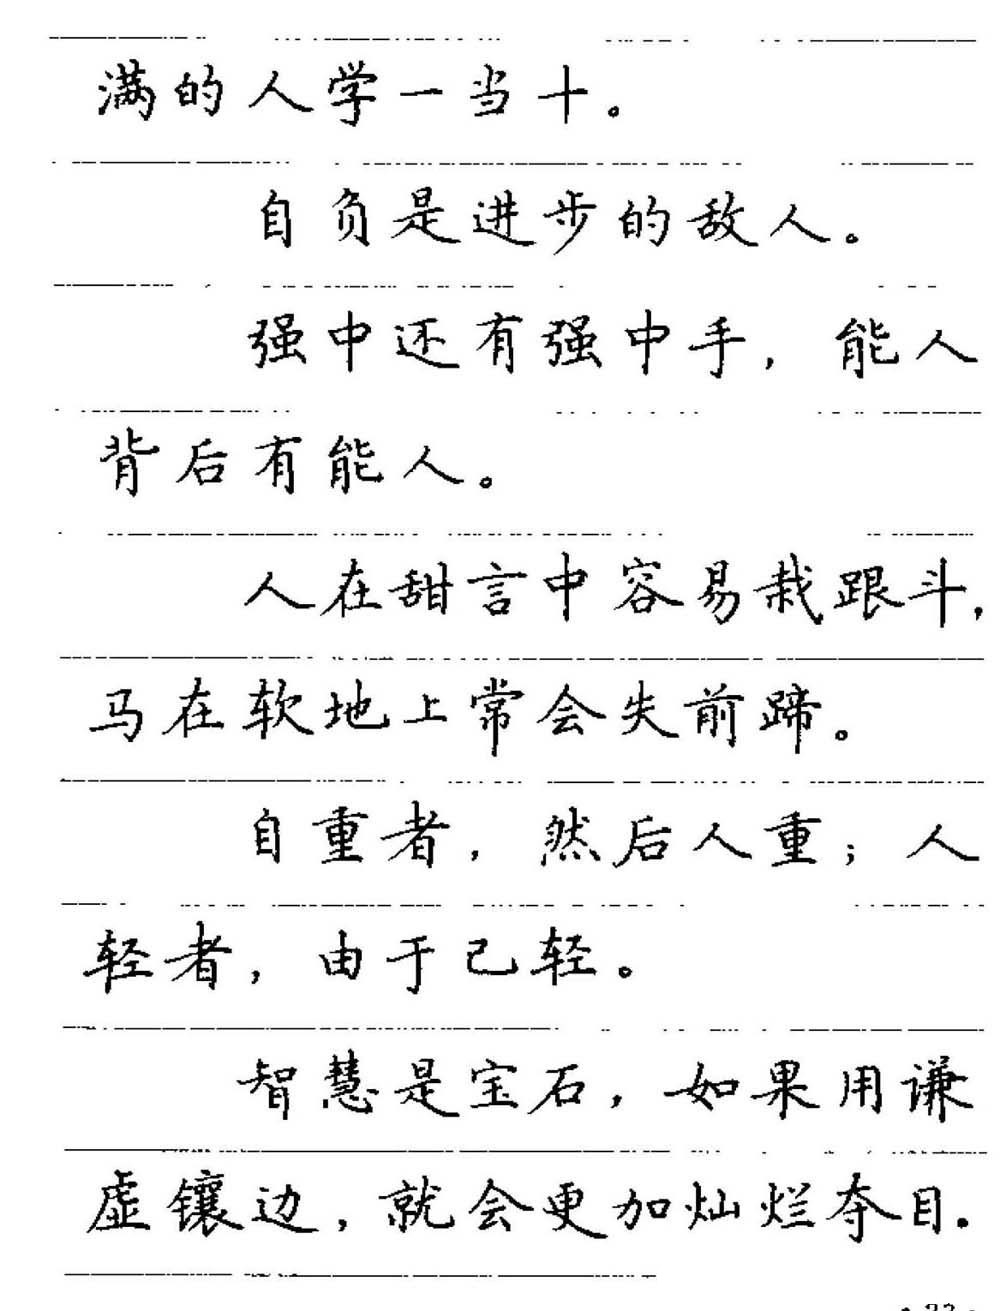 满的人学一当十。
自负是进步的敌人。
强中还有强中手，能人
背后有能人。
人在甜言中容易栽跟斗，
马在软地上常会失前蹄。
自重者，然后人重；人
轻者，由于己轻。
智慧是宝石，如果用谦
虚镶边，就会更加灿烂夺目。